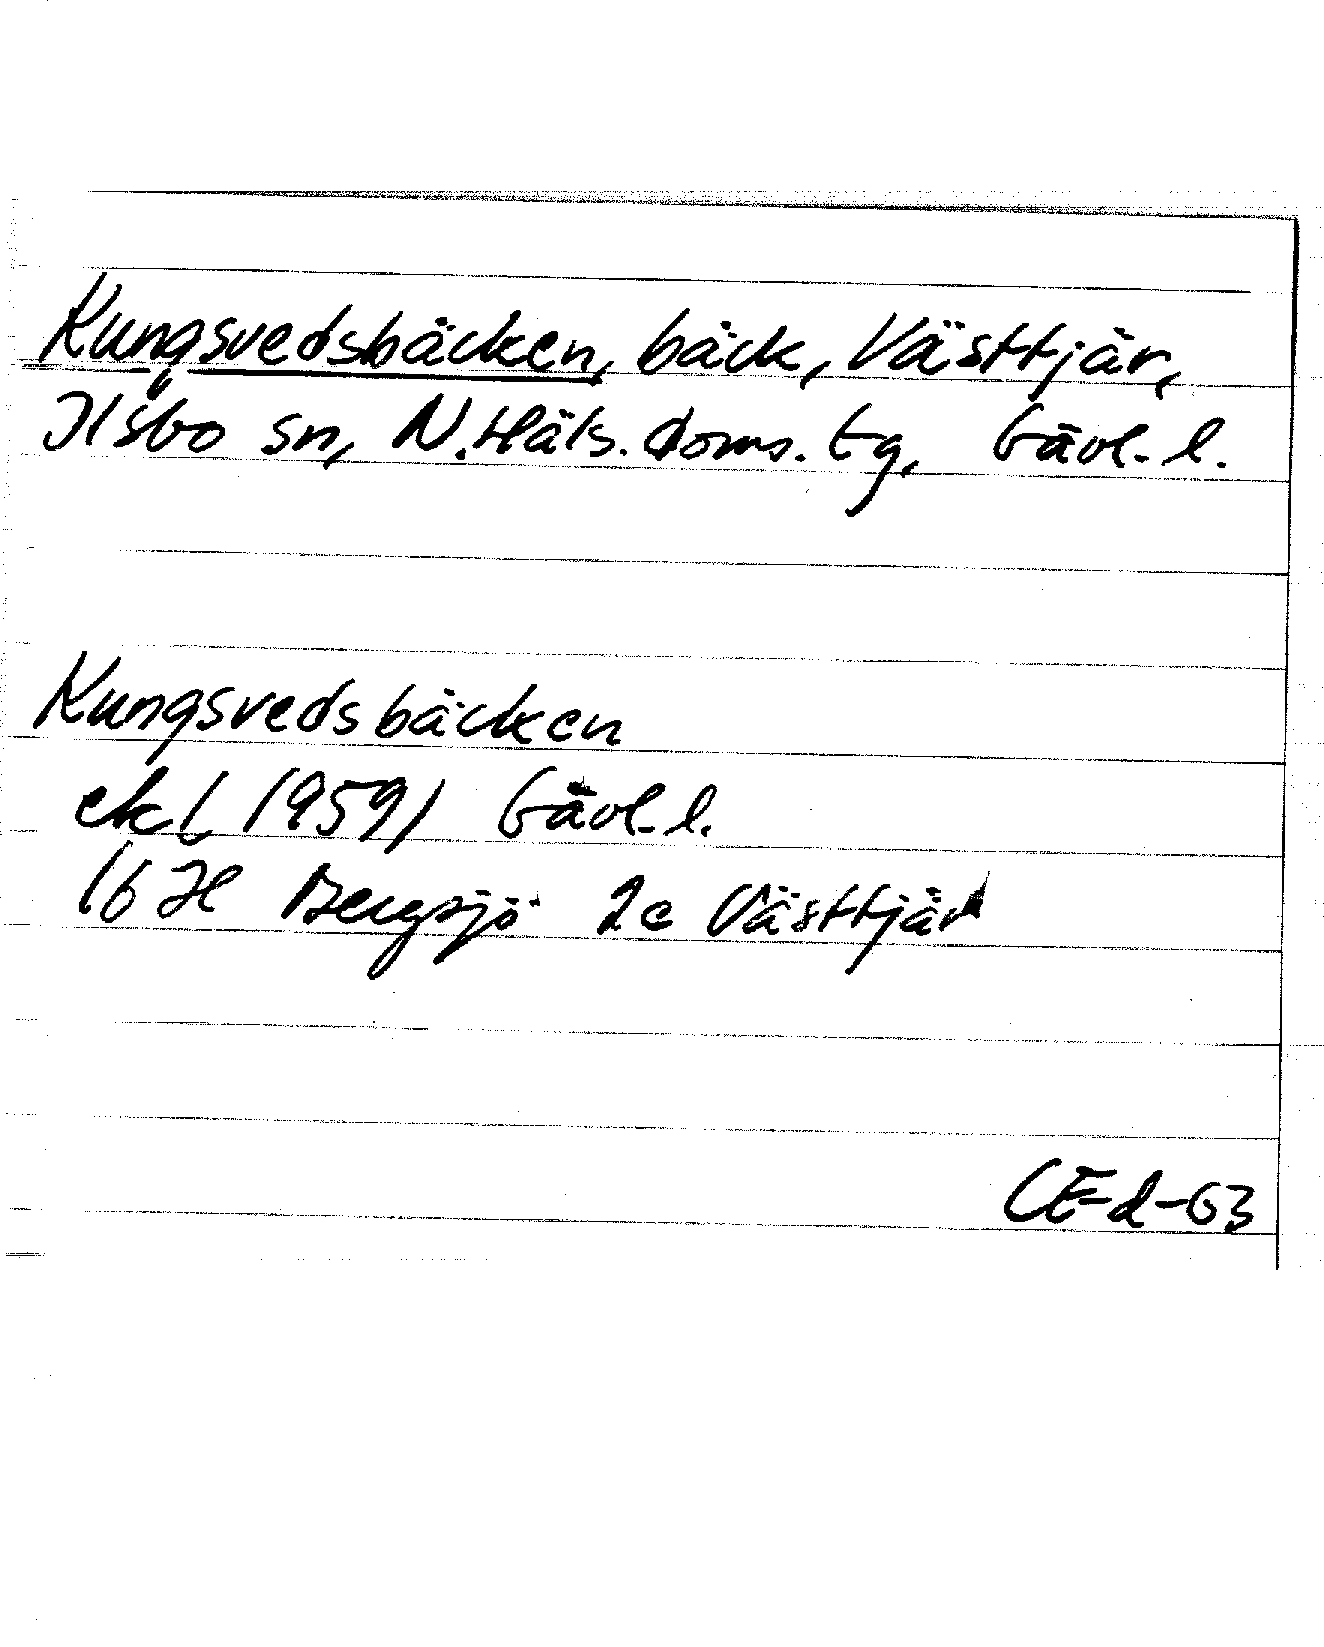 Kungsvedsbäcken, bäck, Västtjär,
Ilsbo sn, N.Häls. doms. tg, Gävl. l.
Kungsvedsbäcken
ek (1959) Gävl. l.
16 H Bergsjö 2c Västtjär
CE-d-63